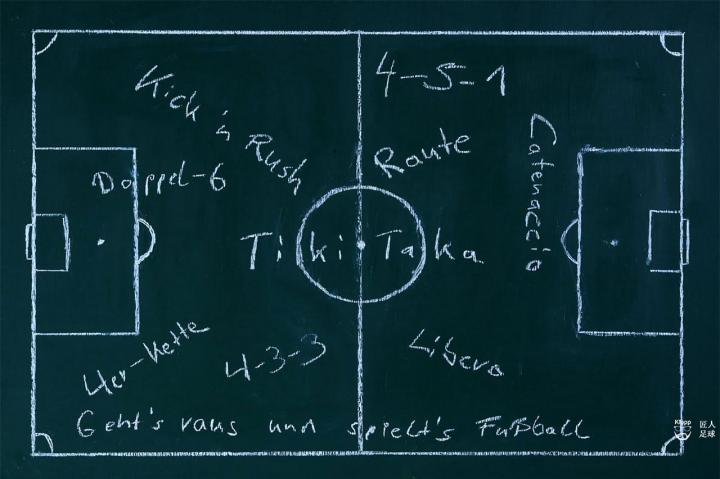 4-5-1
Kick'n Rush
Raute
Catenaccio
Doppel-6
Tiki Taka
4er-Kette
4-3-3
Libero
Geht's raus und spielt's Fußball
Klopp
匠人
足球